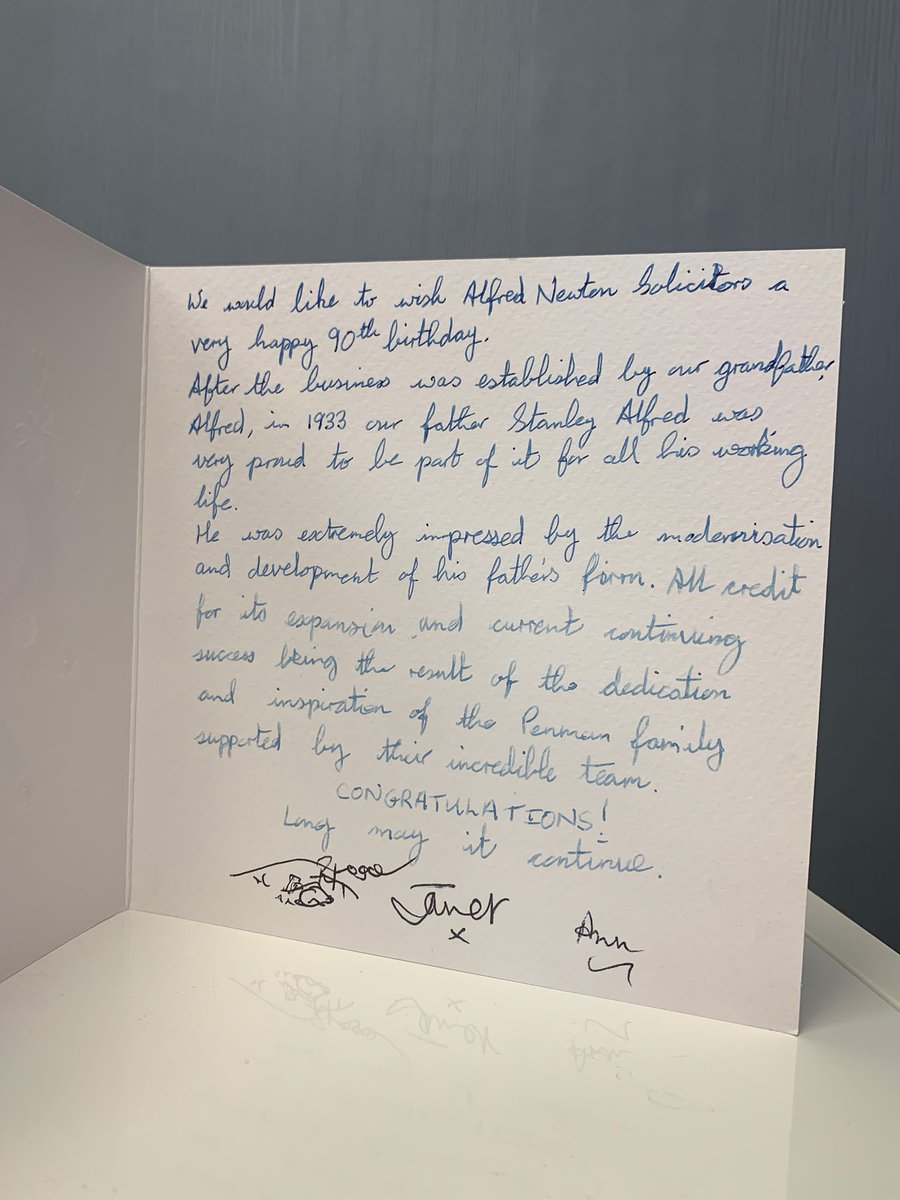 We would like to wish Alfred Newton Solicitors a
very happy 90th birthday.
After the business was established by our grandfather,
Alfred, in 1933 our father Stanley Alfred was
very proud to be part of it for all his working
life.
He was extremely impressed by the modernisation
and development of his father's firm. All credit
for its expansion and current continuing
success being the result of the dedication
and inspiration of the Penman family
supported by their incredible team.
CONGRATULATIONS!
Long may it continue.
Janet
x
Ann